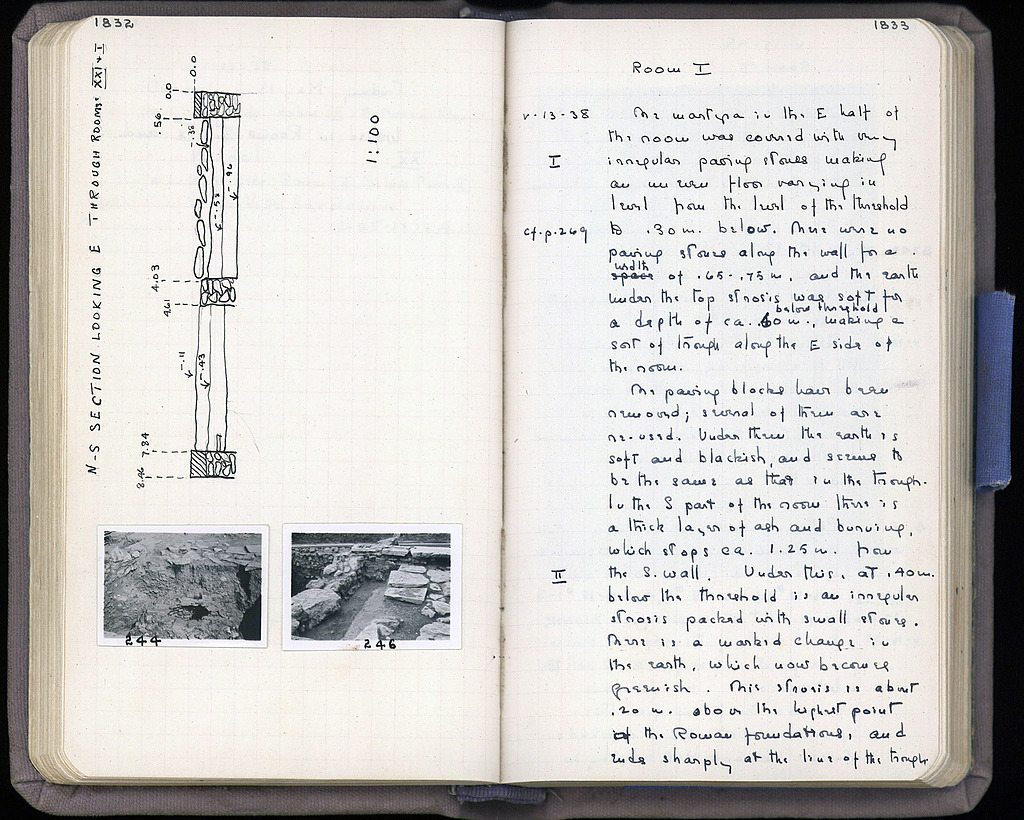 1832
N-S SECTION LOOKING E THROUGH ROOMS XXI + I
0.0
-0.0
.56
-.38
-.53
-.96
4.03
4.61
-.11
-.43
7.84
8.46
1:100
244
246
1833
Room I
V-13-38 The martyra in the E half of
the room was covered with very
I irregular paving stones making
an uneven floor varying in
level from the level of the threshold
cf. p. 269 to .30 m. below. There were no
paving stones along the wall for a
width
space of .65-.75 m. and the earth
under the top strosis was soft for
below threshold
a depth of ca. .60 m., making a
sort of trough along the E side of
the room.
The paving blocks have been
removed; several of them are
re-used. Under them the earth is
soft and blackish, and seems to
be the same as that in the trough.
In the S part of the room there is
a thick layer of ash and burning,
which stops ca. 1.25 m. from
II the S. wall. Under this, at .40 m.
below the threshold is an irregular
strosis packed with small stones.
There is a marked change in
the earth, which now becomes
greenish. This strosis is about
.20 m. above the highest point
of the Roman foundations, and
ends sharply at the line of the trough